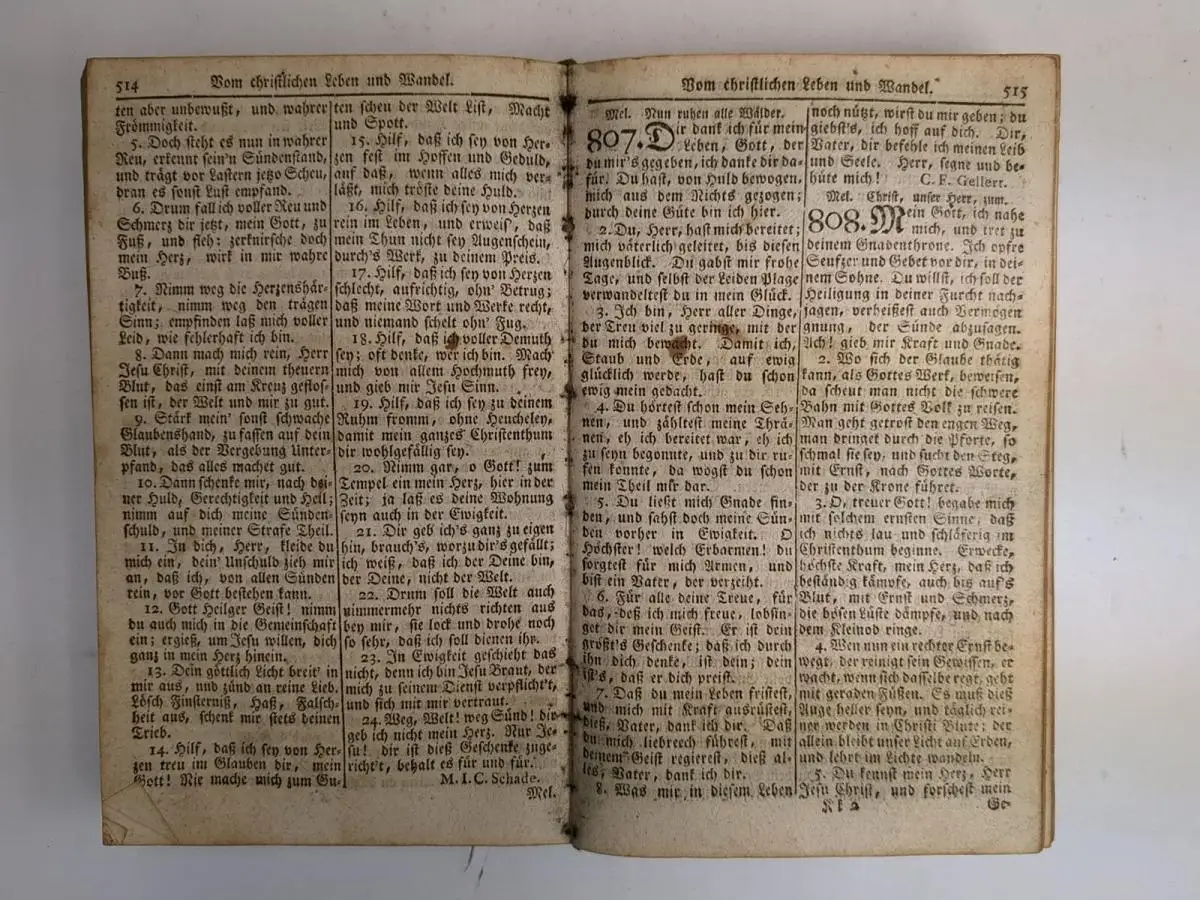 514
Vom christlichen Leben und Wandel.
ten aber unbewußt, und wahrer
Frömmigkeit.
5. Doch steht es nun in wahrer
Reu, erkennt sein'n Sündenstand,
und trägt vor Lastern jetzo Scheu,
dran es sonst Lust empfand.
6. Drum fall ich voller Reu und
Schmerz dir jetzt, mein Gott, zu
Fuß, und fleh: zerknirsche doch
mein Herz, wirk in mir wahre
Buß.
7. Nimm weg die Herzenshär-
tigkeit, nimm weg den trägen
Sinn; empfinden laß mich voller
Leid, wie fehlerhaft ich bin.
8. Dann mach mich rein, Herr
Jesu Christ, mit deinem theuern
Blut, das einst am Kreuz geflos-
sen ist, der Welt und mir zu gut.
9. Stärk mein' sonst schwache
Glaubenshand, zu fassen auf dein
Blut, als der Vergebung Unter-
pfand, das alles machet gut.
10. Dann schenke mir, nach dei-
ner Huld, Gerechtigkeit und Heil;
nimm auf dich meine Sünden-
schuld, und meiner Strafe Theil.
11. In dich, Herr, kleide du
mich ein, dein' Unschuld zieh mir
an, daß ich, von allen Sünden
rein, vor Gott bestehen kann.
12. Gott Heilger Geist! nimm
du auch mich in die Gemeinschaft
ein; ergieß, um Jesu willen, dich
ganz in mein Herz hinein.
13. Dein göttlich Licht breit' in
mir aus, und zünd an reine Lieb.
Lösch Finsterniß, Haß, Falsch-
heit aus, schenk mir stets deinen
Trieb.
14. Hilf, daß ich sey von Her-
zen treu im Glauben dir, mein
Gott! Nie mache mich zum Gu-
ten scheu der Welt List, Macht
und Spott.
15. Hilf, daß ich sey von Her-
zen fest im Hoffen und Geduld,
auf daß, wenn alles mich ver-
läßt, mich tröste deine Huld.
16. Hilf, daß ich sey von Herzen
rein im Leben, und erweis', daß
mein Thun nicht sey Augenschein,
durch's Werk, zu deinem Preis.
17. Hilf, daß ich sey von Herzen
schlecht, aufrichtig, ohn' Betrug;
daß meine Wort und Werke recht,
und niemand schelt ohn' Fug.
18. Hilf, daß ich voller Demuth
sey; oft denke, wer ich bin. Mach
mich von allem Hochmuth frey,
und gieb mir Jesu Sinn.
19. Hilf, daß ich sey zu deinem
Ruhm fromm, ohne Heucheley,
damit mein ganzes Christenthum
dir wohlgefällig sey.
20. Nimm gar, o Gott! zum
Tempel ein mein Herz, hier in der
Zeit; ja laß es deine Wohnung
seyn auch in der Ewigkeit.
21. Dir geb ich's ganz zu eigen
hin, brauch's, worzu dir's gefällt;
ich weiß, daß ich der Deine bin,
der Deine, nicht der Welt.
22. Drum soll die Welt auch
nimmermehr nichts richten aus
bey mir, sie lock und drohe noch
so sehr, daß ich soll dienen ihr.
23. In Ewigkeit geschieht das
nicht, denn ich bin Jesu Braut, der
mich zu seinem Dienst verpflicht't,
und sich mit mir vertraut.
24. Weg, Welt! weg Sünd! dir
geb ich nicht mein Herz. Nur Je-
su! dir ist dieß Geschenke zuge-
richt't, behalt es für und für.
M. I. C. Schade.
Mel.
Vom christlichen Leben und Wandel.
515
Mel. Nun ruhen alle Wälder.
807. Dir dank ich für mein
Leben, Gott, der
du mir's gegeben, ich danke dir da-
für. Du hast, von Huld bewogen,
mich aus dem Nichts gezogen;
durch deine Güte bin ich hier.
2. Du, Herr, hast mich bereitet;
mich väterlich geleitet, bis diesen
Augenblick. Du gabst mir frohe
Tage, und selbst der Leiden Plage
verwandeltest du in mein Glück.
3. Ich bin, Herr aller Dinge,
der Treu viel zu geringe, mit der
du mich bewacht. Damit ich,
Staub und Erde, auf ewig
glücklich werde, hast du schon
ewig mein gedacht.
4. Du hörtest schon mein Seh-
nen, und zähltest meine Thrä-
nen, eh ich bereitet war, eh ich
zu seyn begonnte, und zu dir ru-
fen konnte, da wogst du schon
mein Theil mir dar.
5. Du ließt mich Gnade fin-
den, und sahst doch meine Sün-
den vorher in Ewigkeit. O
Höchster! welch Erbarmen! du
sorgtest für mich Armen, und
bist ein Vater, der verzeiht.
6. Für alle deine Treue, für
das, deß ich mich freue, lobsin-
get dir mein Geist. Er ist dein
größt's Geschenke; daß ich durch
ihn dich denke, ist dein; dein
ist's, daß er dich preist.
7. Daß du mein Leben fristest,
und mich mit Kraft ausrüstest,
dieß, Vater, dank ich dir. Daß
du mich liebreich führest, mit
deinem Geist regierest, dieß al-
les, Vater, dank ich dir.
8. Was mir in diesem Leben
noch nützt, wirst du mir geben; du
giebst's, ich hoff auf dich. Dir,
Vater, dir befehle ich meinen Leib
und Seele. Herr, segne und be-
hüte mich! C. F. Gellert.
Mel. Christ, unser Herr, zum.
808. Mein Gott, ich nahe
mich, und tret zu
deinem Gnadenthrone. Ich opfre
Seufzer und Gebet vor dir, in dei-
nem Sohne. Du willst, ich soll der
Heiligung in deiner Furcht nach-
jagen, verheißest auch Vermögen
gnung, der Sünde abzusagen.
Ach! gieb mir Kraft und Gnade.
2. Wo sich der Glaube thätig
kann, als Gottes Werk, beweisen,
da scheut man nicht die schwere
Bahn mit Gottes Volk zu reisen.
Man geht getrost den engen Weg,
man dringet durch die Pforte, so
schmal sie sey, und sucht den Steg,
mit Ernst, nach Gottes Worte,
der zu der Krone führet.
3. O, treuer Gott! begabe mich
mit solchem ernsten Sinne; daß
ich nichts lau und schläferig im
Christenthum beginne. Erwecke,
höchste Kraft, mein Herz, daß ich
beständ:g kämpfe, auch bis auf's
Blut, mit Ernst und Schmerz,
die bösen Lüste dämpfe, und nach
dem Kleinod ringe.
4. Wen nun ein rechter Ernst be-
wegt, der reinigt sein Gewissen, er
wacht, wenn sich dasselbe regt, geht
mit geraden Füßen. Es muß dieß
Auge heller seyn, und täglich rei-
ner werden in Christi Blute; der
allein bleibt unser Licht auf Erden,
und lehrt im Lichte wandeln.
5. Du kennst mein Herz, Herr
Jesu Christ, und forschest mein
Kk 2
Ge-